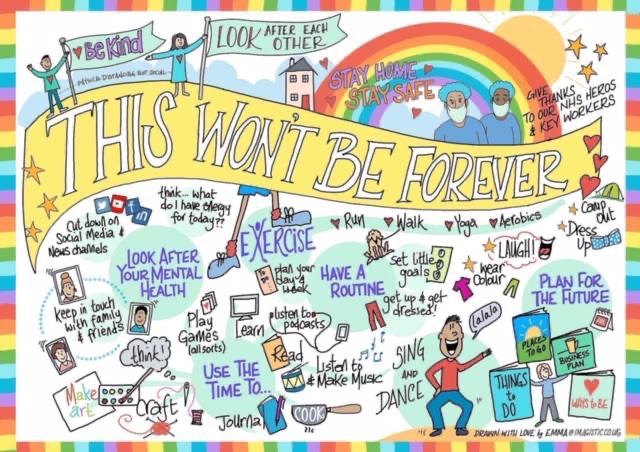 Be Kind
LOOK AFTER EACH
OTHER
...PHYSICAL DISTANCING NOT SOCIAL...
STAY HOME
STAY SAFE
GIVE
THANKS
TO OUR NHS HEROS
& KEY WORKERS
THIS WON'T BE FOREVER
Cut down on
Social Media &
News channels
think... what
do I have energy
for today??
EXERCISE
Run
Walk
Yoga
Aerobics
Camp
out
Dress
Up
LOOK AFTER
YOUR MENTAL
HEALTH
plan your
day &
week
HAVE A
ROUTINE
Set little
goals
get up & get
dressed!
LAUGH!
wear
Colour
PLAN FOR
THE FUTURE
keep in touch
with family
& friends
think!
Make
art
Craft
Play
Games
(all sorts)
Learn
listen to
podcasts
Read
Listen to
& Make Music
USE THE
TIME TO...
Journal
COOK
SING
AND
DANCE
Lalala
PLACES
TO GO
BUSINESS
PLAN
THINGS
to
DO
WAYS to BE
DRAWN WITH LOVE by EMMA@IMAGISTIC.CO.UK